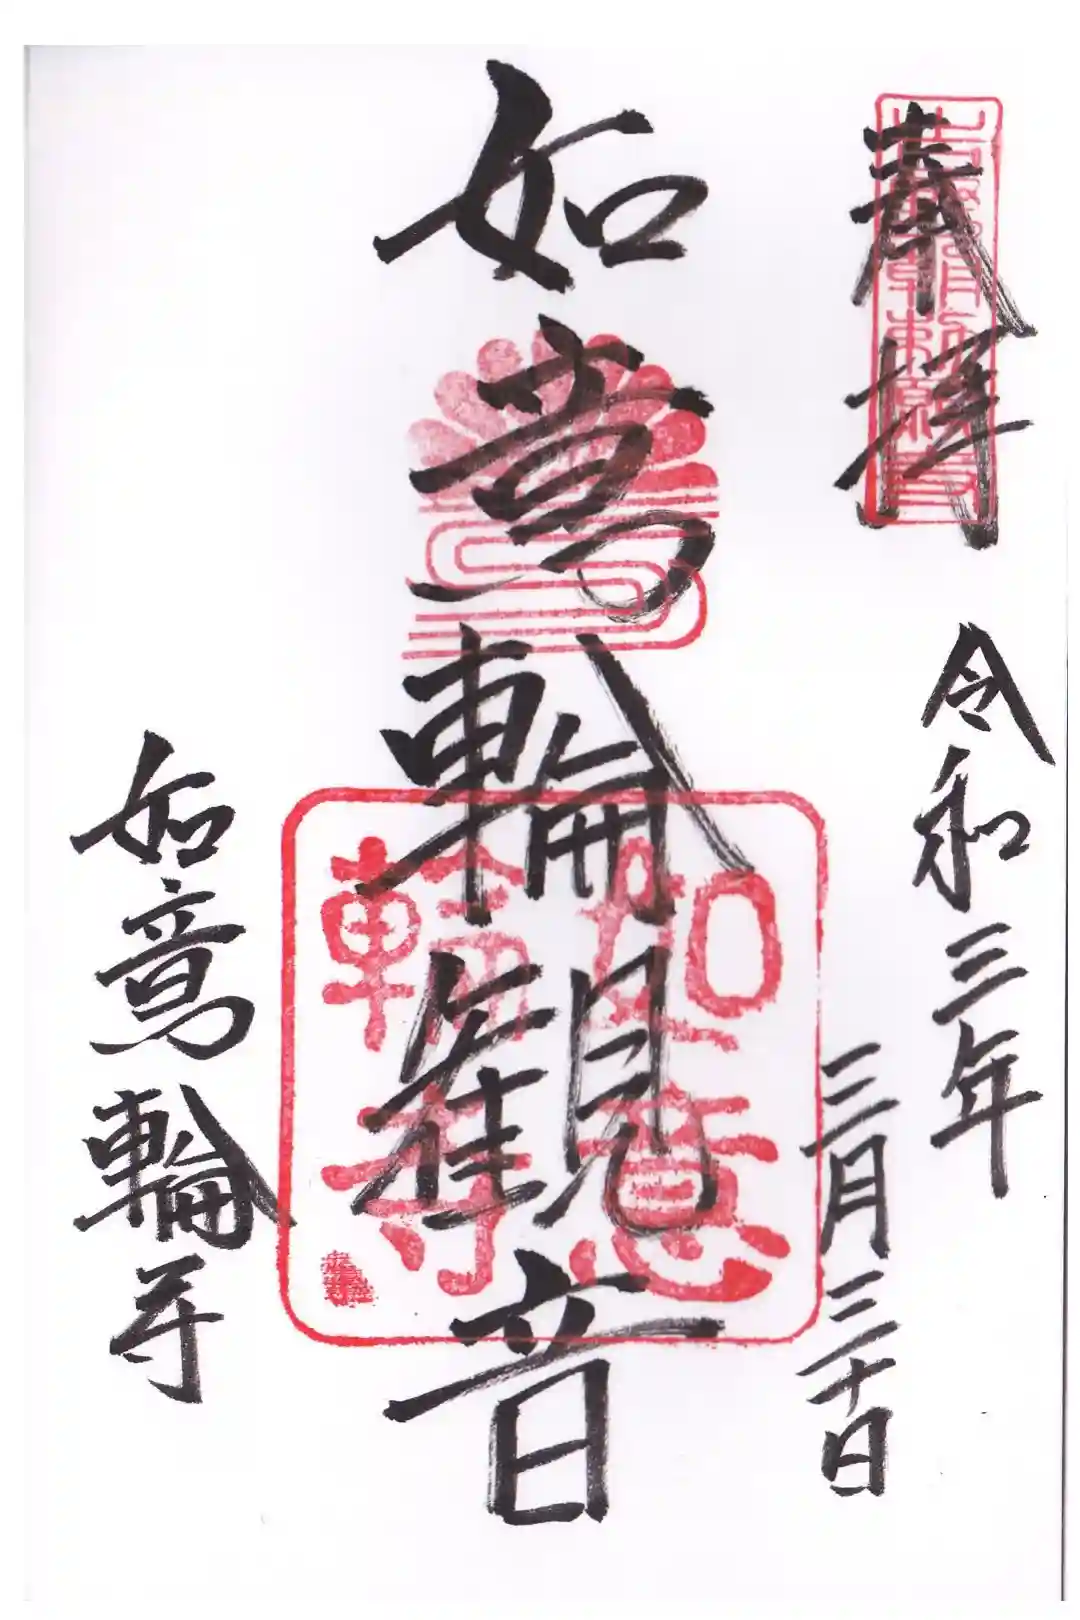 奉拝
令和三年
三月三十日
如意輪観音
如意輪寺
如意
輪寺